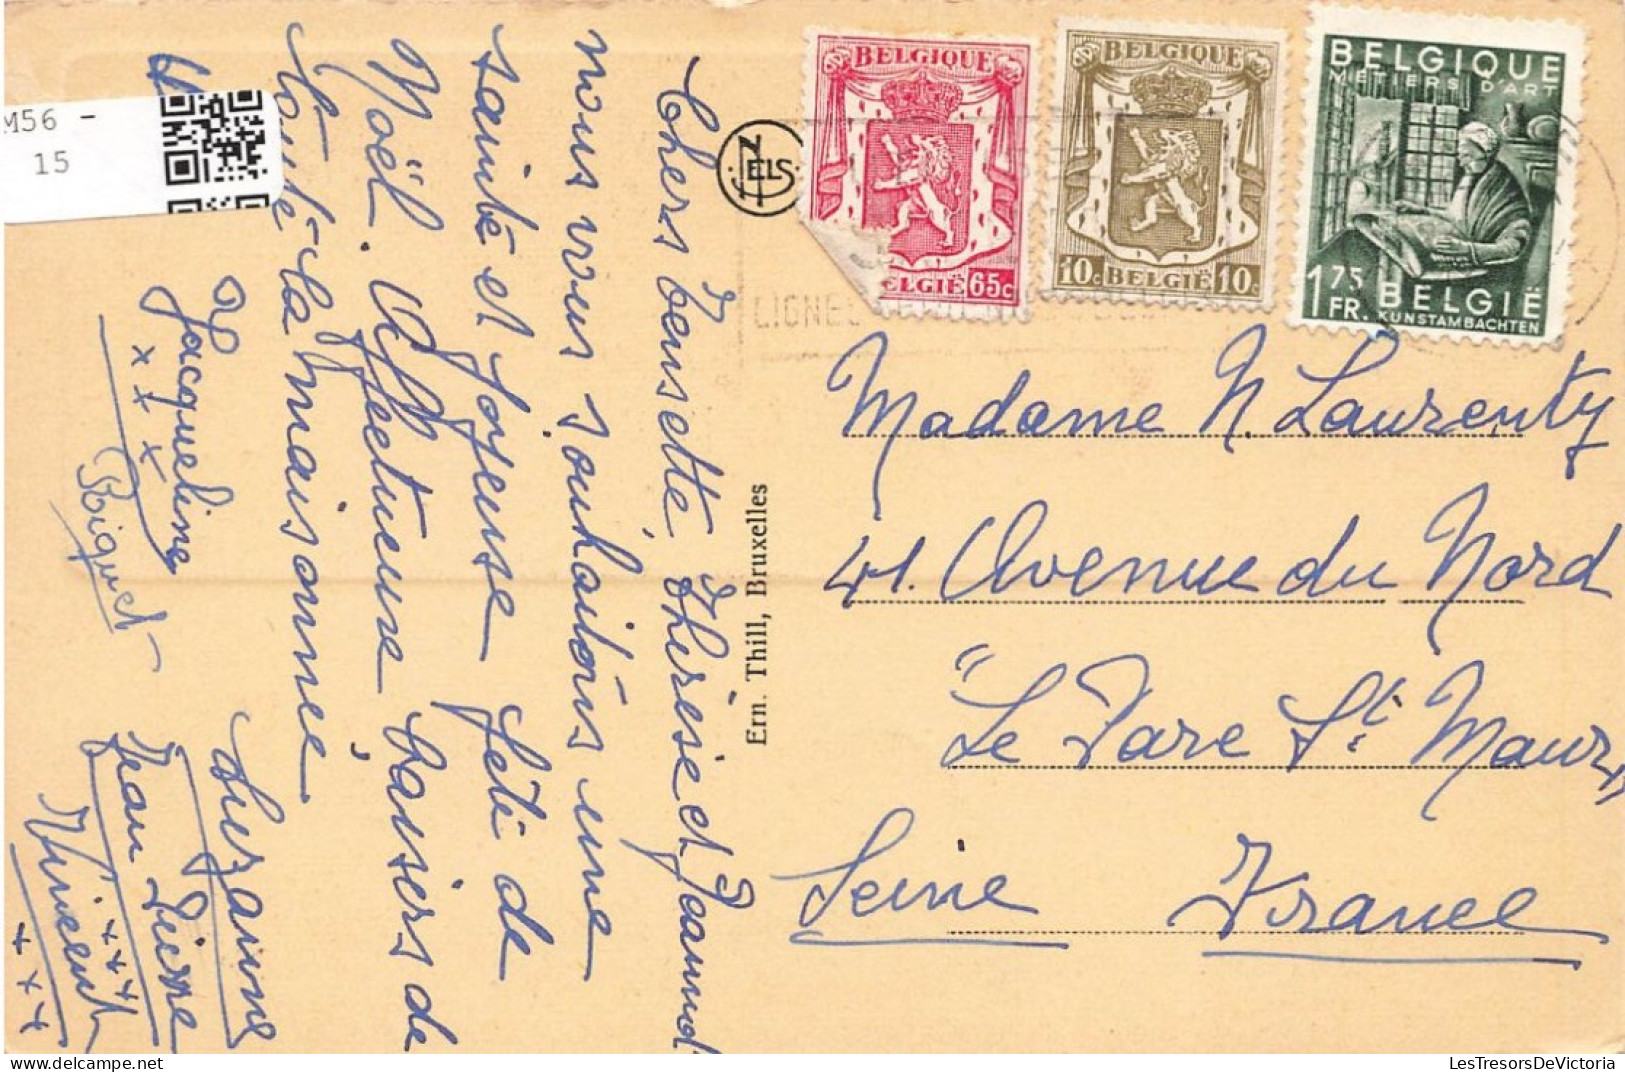 Chers tensette, Thérèse et Jeannot
nous vous souhaitons une
sainte et joyeuse fête de
Noël. Affectueux baisers de
toute la maisonnée
Jacqueline
x x x
Riquet
Suzanne
Jean Pierre
Vincent
M56 -
15
NELS
Ern. Thill, Bruxelles
BELGIQUE
BELGIË 65c
BELGIQUE
10c BELGIË 10c
BELGIQUE
METIERS D'ART
1 75 FR. BELGIË
KUNSTAMBACHTEN
Madame N. Laurenty
41. Avenue du Nord
"Le Parc St Maur"
Seine France
LesTresorsDeVictoria